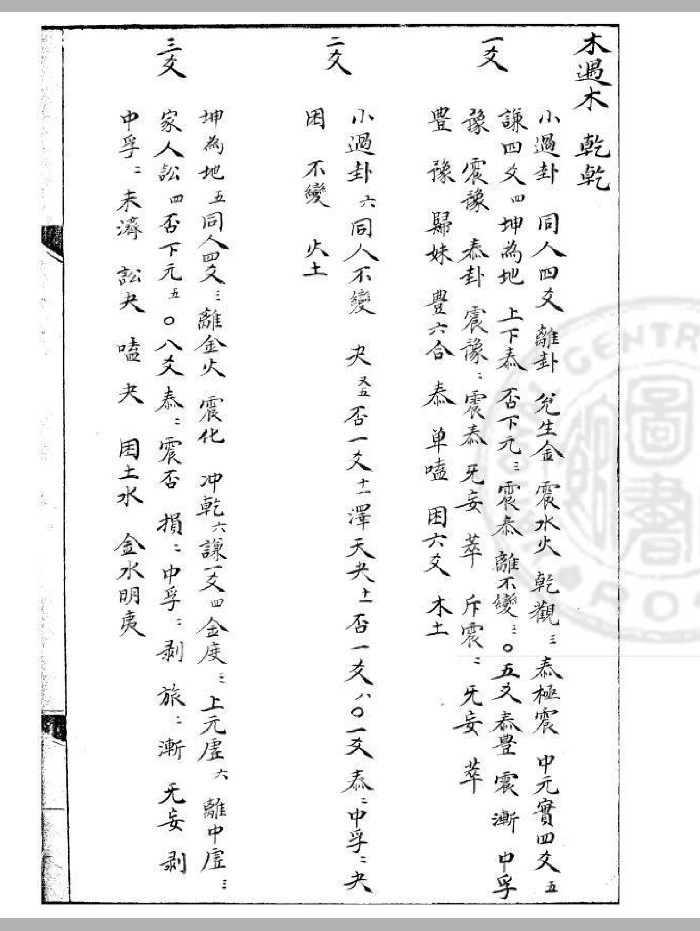 木過木 乾乾
一爻
小過卦 同人四爻 離卦 兌生金 震水火 乾觀三 泰極震 中元實四爻五
謙四爻四坤為地 上下泰 否下元三震泰 離不變三〇五爻泰豊震漸 中孚
豫震豫 泰卦 震豫二震泰 旡妄 萃 斥震二旡妄 萃
豊 豫 歸妹 豊六合 泰 单嗑 困六爻 木土
二爻
小過卦六同人不變 夬五否一爻十一澤天夬上否一爻八〇一爻泰二中孚二夬
困 不變 火土
三爻
坤為地五同人四爻三離金火 震化 冲乾六謙一爻四金度三上元虛六離中虛三
家人訟四否下元五〇八爻泰二震否 損二中孚二剥 旅二漸 旡妄 剥
中孚二未濟 訟夬 嗑 夬 困土水 金水明夷